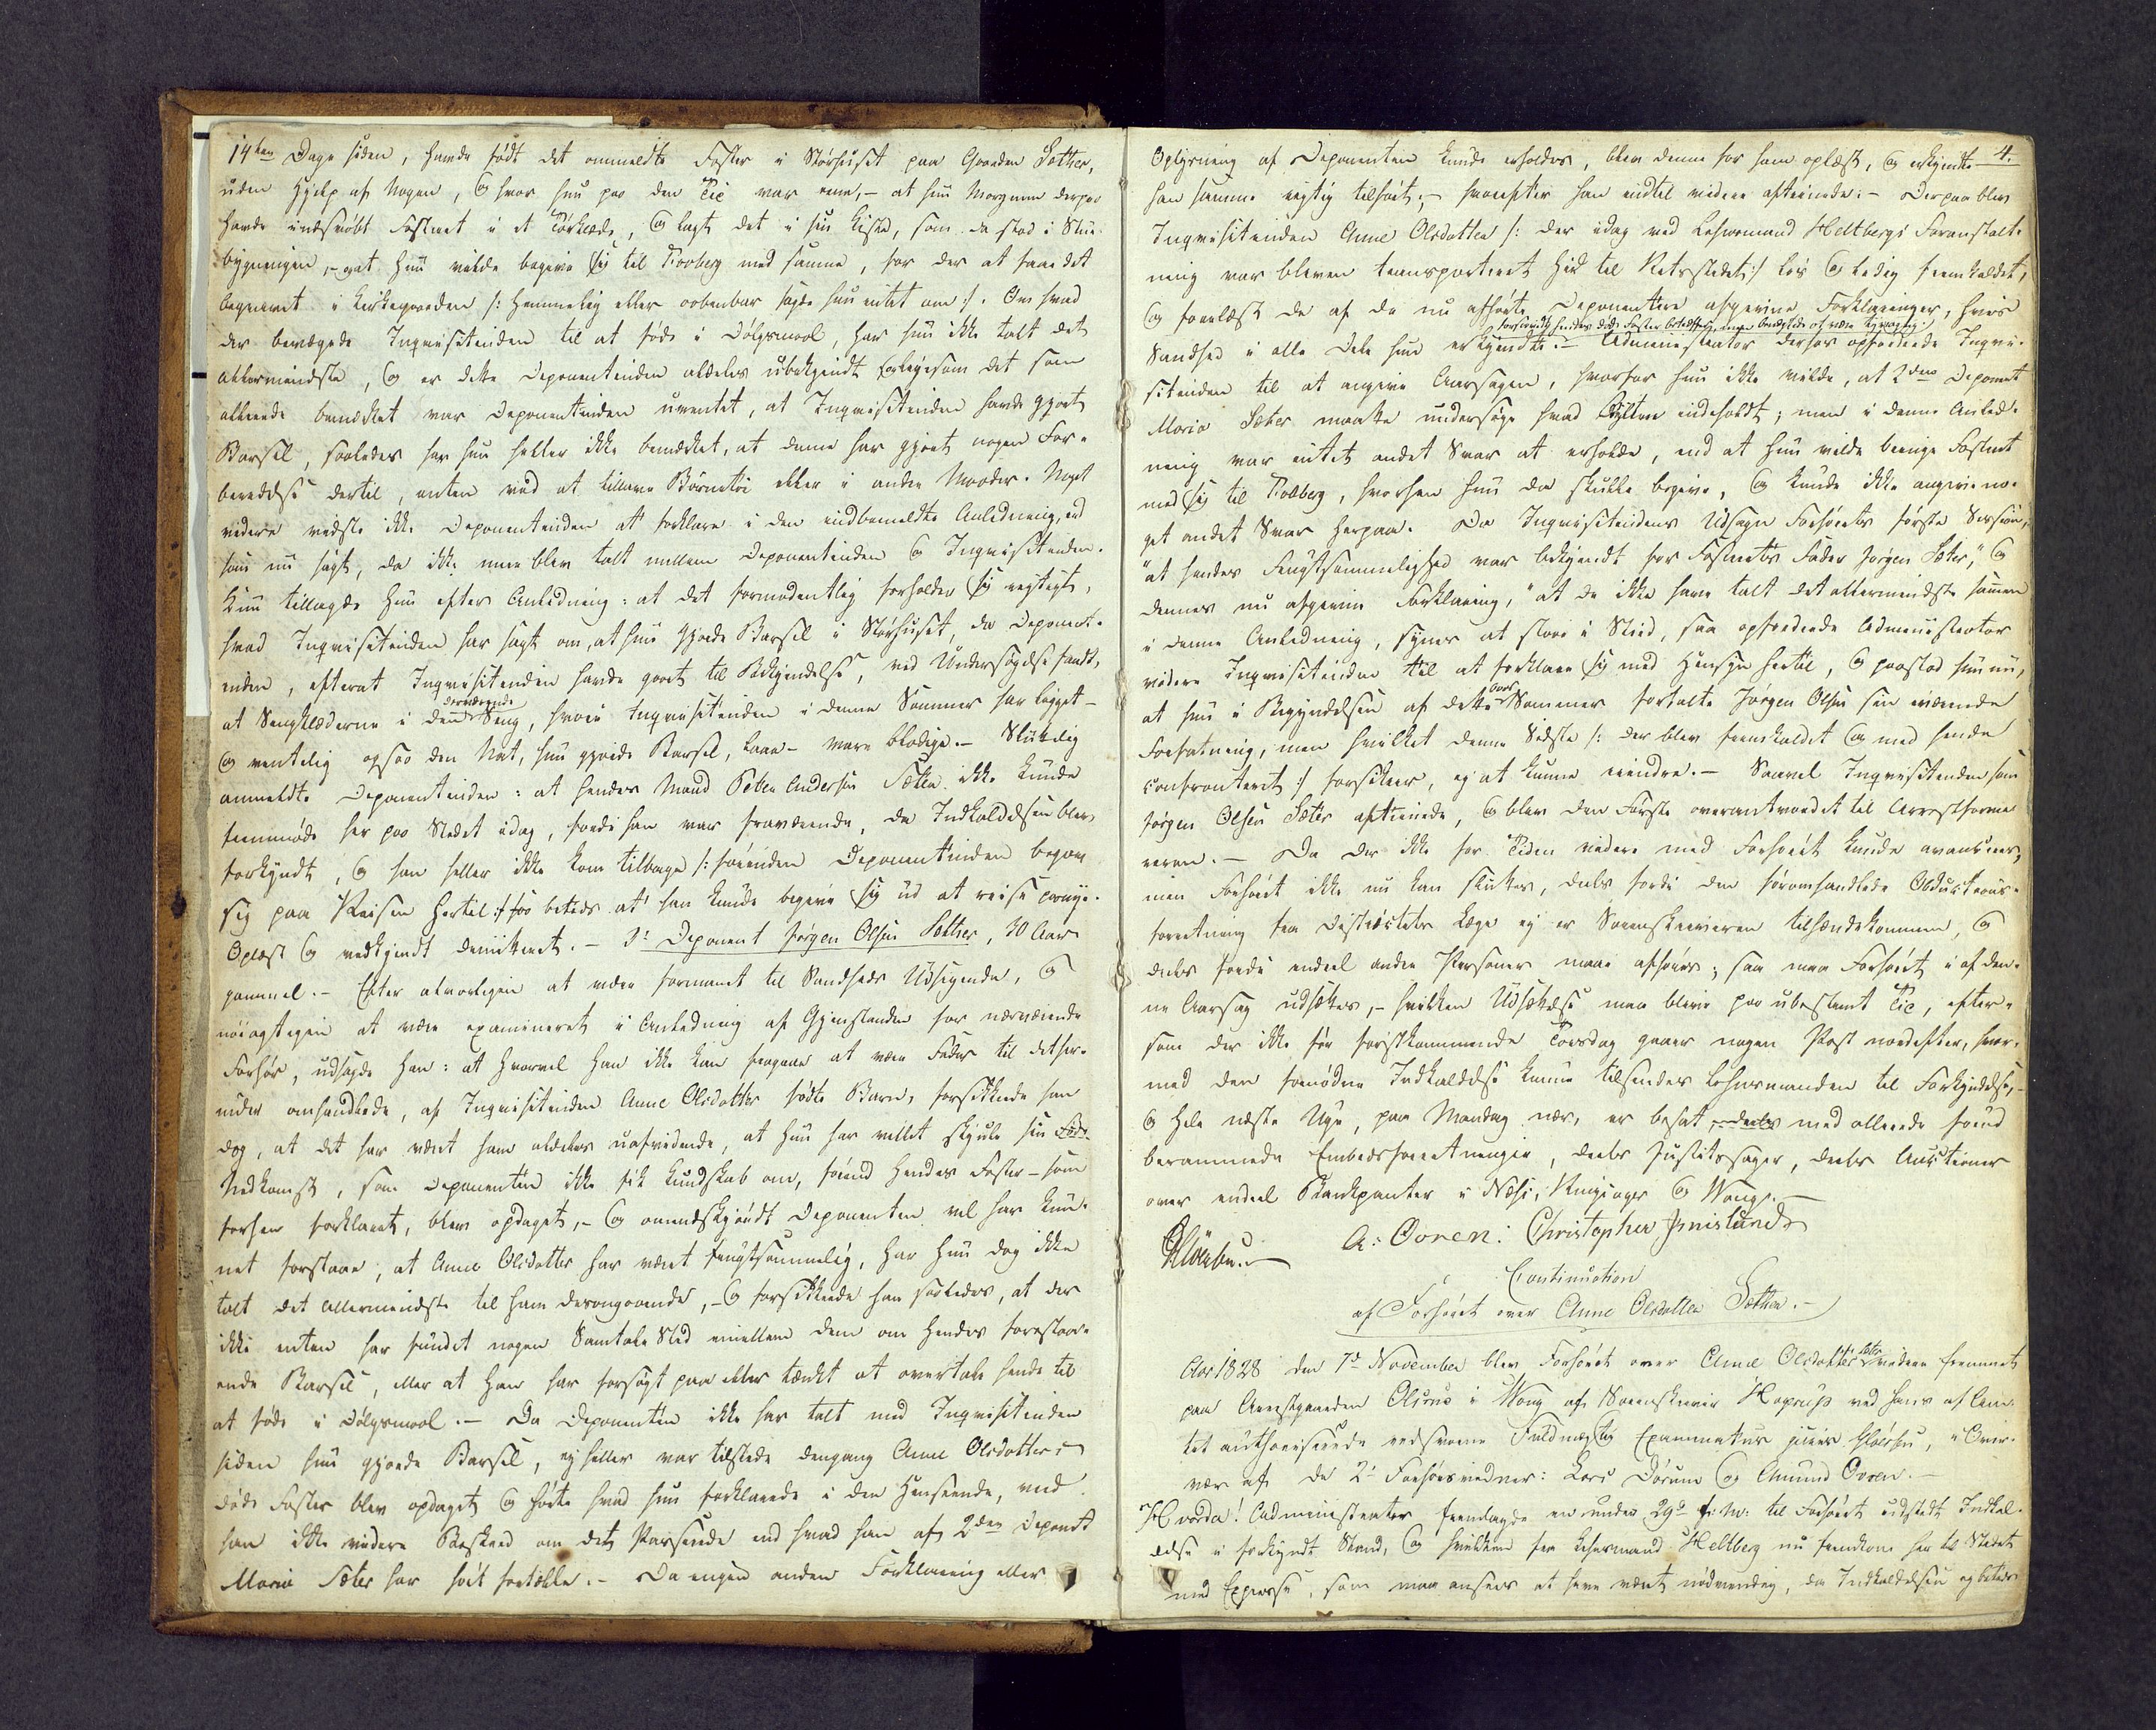 14ten Dage siden, havde født det ommeldte Foster i Størhuset paa Gaarden Sæther,
uden Hjelp af Nogen, og hvor hun paa den Tiid var ene, – at hun Morgenen derpaa
havde indsvøbt Fosteret i et Tørklæde, og lagt det i sin Kiste, som da stod i Stue-
bygningen, – at hun vilde begive sig til Rolberg med samme, for der at faae det
begravet i Kirkegaarden /: hemmelig eller aabenbar sagde hun intet om :/. Om hvad
der bevægede Inquisitinden til at føde i Dølgsmaal, har hun ikke talt det
allermindste, og er dette Deponentinden aldeles ubekjendt og ligesom det som
allerede bemærket var Deponentinden uventet, at Inquisitinden havde gjort
Barsel, saaledes har hun heller ikke bemærket, at denne har gjort nogen For-
beredelse dertil, enten ved at tillave Børnetøi eller i anden Maader. Noget
videre vidste ikke Deponentinden at forklare i den indbemeldte Anledning, end
som nu sagt, da ikke mere blev talt mellem Deponentinden og Inquisitinden.
Kun tillagde hun efter Anledning: at det formodentlig forholder sig rigtigt,
hvad Inquisitinden har sagt om, at hun gjorde Barsel i Størhuset, da Deponent-
inden, efterat Inquisitinden havde gaaet til Bekjendelse, ved Undersøgelse fandt,
at Sengklæderne i den derværende Seng, hvori Inquisitinden i denne Sommer har ligget –
og ventelig ogsaa den Nat, hun gjorde Barsel, laae – vare blodige. – Sluttelig
anmeldte Deponentinden: at hendes Mand Peder Andersen Sæther ikke kunde
fremmøde her paa Stedet idag, fordi han var fraværende, da Indkaldelsen blev
forkyndt, og han heller ikke kom tilbage /: førinden Deponentinden begav
sig paa Reisen hertil :/ saa betids at han kunde begive sig ud at reise
Oplæst og vedkjendt demitteret. – 3die Deponent Jørgen Olsen Sæther, 30 Aar
gammel. – Efter alvorligen at være formanet til Sandheds Udsigende, og
nøiagtigen at være examineret i Anledning af Gjenstanden for nærværende
Forhør, udsagde han: at hvorvel han ikke kan fragaae at være Fader til det her-
under omhandlede, af Inquisitinden Anne Olsdatter fødte Barn, forsikkrede han
dog, at det har været ham aldeles uafvidende, at hun har villet skjule sin
Nedkomst, som Deponenten ikke fik Kundskab om, førend hendes Foster – som
forhen forklaret, blev opdaget, – og omendskjøndt Deponenten vel har kun-
net forstaae, at Anne Olsdatter har været frugtsommelig, har hun dog ikke
talt det allermindste til ham desangaaende, – og forsikkrede han saaledes, at der
ikke enten har fundet nogen Samtale Sted imellem dem om hendes forestaa-
ende Barsel, eller at han har forsøgt paa eller tænkt at overtale hende til
at føde i Dølgsmaal. – Da Deponenten ikke har talt med Inquisitinden
siden hun gjorde Barsel, ei heller var tilstede dengang Anne Olsdatters
døde Foster blev opdaget og hørte hvad hun forklarede i den Henseende, veed
han ikke videre Beskeed om det Passerede end hvad han af 2den Deponent
Maria Sæter har hørt fortælle. – Da ingen anden Forklaring eller
4.
Oplysning af Deponenten kunde erholdes, blev denne for ham oplæst, og erkjendte
han samme rigtig tilført; – hvorefter han indtil videre aftrædede. – Derpaa blev
Inquisitinden Anne Olsdatter /: der idag ved Lehnsmand Heltbergs Foranstalt-
ning var bleven transporteret hid til Retsstedet :/ løs og ledig fremkaldet,
og forelæst de af de nu afhørte Deponentere afgivne Forklaringer, hvis
Sandhed i alle Dele hun erkjendte. – Administrator derfor opfordrede Inqvi-
forsaavidt hendes døde Foster betræffer, men
sitinden til at angive Aarsagen, hvorfor hun ikke vilde, at 2den Deponent
Maria Sæter maatte undersøge hvad Bylten indeholdt; men i denne Anled-
ning var intet andet Svar at erholde, end at hun vilde bringe Fosteret
med sig til Rolberg, hvorhen hun da skulde begive, og kunde ikke angive no-
get andet Svar herpaa. Da Inquisitindens Udsagn Forhørets første Session,
"at hendes Frugtsommelighed var bekjendt for Fosterets Fader Jørgen Sæter," og
dennes nu afgivne Forklaring, "at de ikke have talt det allermindste sammen
i denne Anledning, synes at staae i Strid, saa opfordrede Administrator
videre Inquisitinden til at forklare sig med Hensyn hertil, og paastod hun nu,
at hun i Begyndelsen af dette Aars Sommer fortalte Jørgen Olsen sin værende
Forfatning, men hvilket denne Sidste /: der blev fremkaldet og med hende
confronteret :/ forsikrer, ej at kunne erindre. – Saavel Inquisitinden som
Jørgen Olsen Sæter aftraadte, og blev den Første overantvordet til Arrestforva-
reren. – Da der ikke for Tiden videre med Forhøret kunde avanceres,
men Forhøret ikke nu kan sluttes, deels fordi den føromhandlede Obductions-
forretning fra Districtets Læge ej er Sorenskriveren tilhændekommen, og
deels fordi endeel andre Personer maae afhøres; saa maa Forhøret i af den-
ne Aarsag udsættes, – hvilken Udsættelse maa blive paa ubestemt Tiid, efter-
som der ikke før førstkommende Torsdag gaaer nogen Post nordefter, hvor-
med den fornødne Indkaldelse kunne tilsendes Lehnsmanden til Forkyndelse, –
og hele næste Uge, paa Mandag nær, er besat, deels med allerede forud
berammede Embedsforretninger, deels Justitssager, deels Auctioner
over endeel Bankpanter i Næss, Ringsager og Wang. –
A: Ovren: Christopher Jmislund
Continuation
af Forhøret over Anne Olsdatter Sæther. –
Aar 1828 den 7de November blev Forhøret over Anne Olsdatter Sæter videre fremmet
paa Arrestgaarden Olsrud i Wang af Sorenskriver Hoprup ved hans af Am-
tet authoriserede edsvorne Fuldmægtig Examinatus juris, i Over-
vær af de 2de Forhørsvidner: Lars Dørum og Amund Ovren. –
Hvorda! Administrator fremlagde en under 29de f: M: til Forhøret udstedt Indkal-
delse i forkyndt Stand, og hvilken fra Lehnsmand Heltberg nu fremkom her til Stedet
med Expresse, som maa ansees at have været nødvendig, da Indkaldelsen ej betids